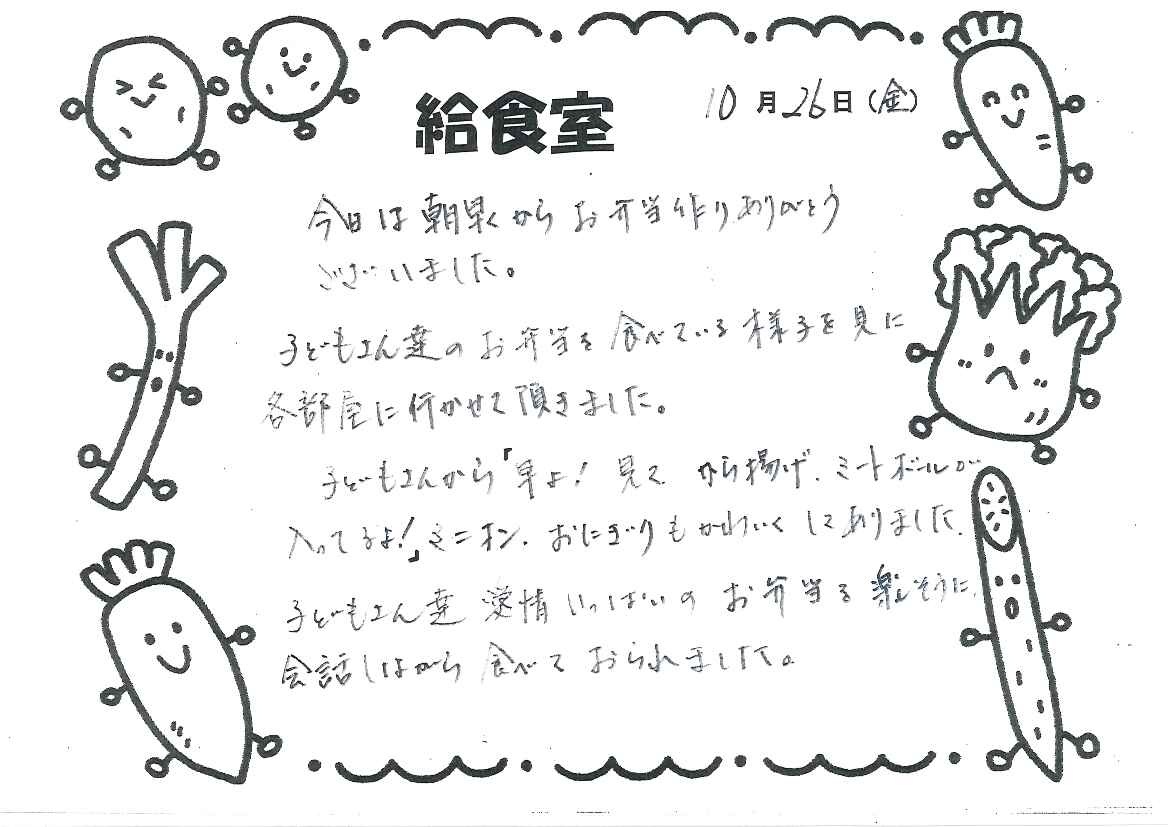 給食室
10月26日(金)
今日は朝早くからお弁当作りありがとう
ございました。
子どもさん達のお弁当を食べている様子を見に
各部屋に行かせて頂きました。
子どもさんから「早よ!見て から揚げ、ミートボールが
入ってるよ!」ミニオン、おにぎりもかわいくしてありました。
子どもさん達 愛情いっぱいのお弁当を楽しそうに、
会話しながら食べておられました。